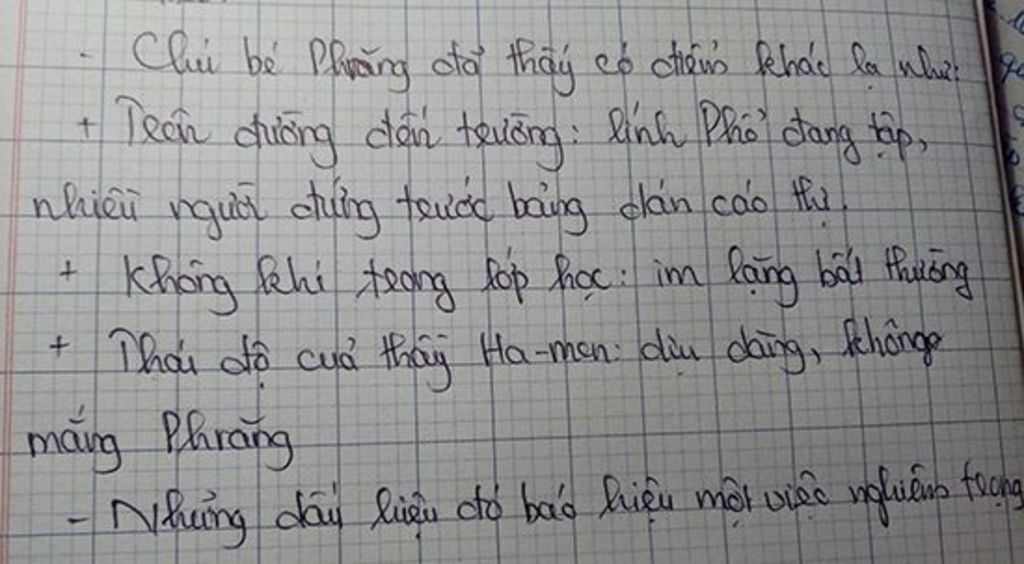 - Chú bé Phrăng đã thấy có điểm khác lạ như:
+ Trên đường đến trường: lính Phổ đang tập,
nhiều người đứng trước bảng dán cáo thị.
+ Không khí trong lớp học: im lặng bất thường
+ Thái độ của thầy Ha-men: dịu dàng, không
mắng Phrăng
- Những dấu hiệu đó báo hiệu một việc nghiêm trọng